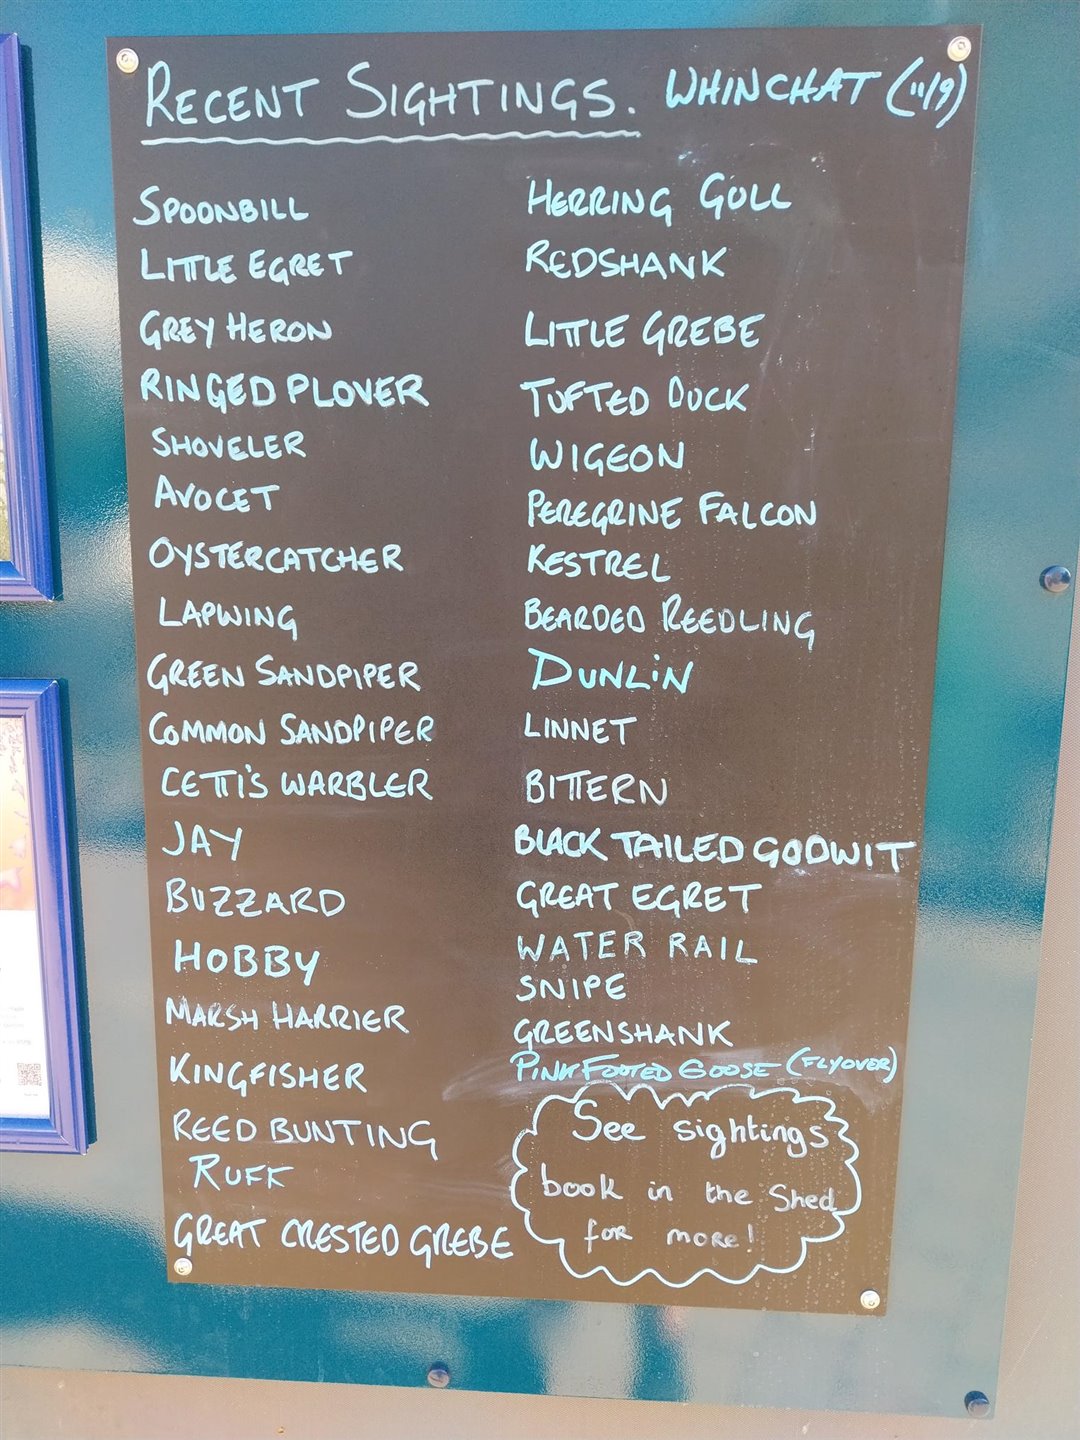 RECENT SIGHTINGS. WHINCHAT (11/9)
SPOONBILL
LITTLE EGRET
GREY HERON
RINGED PLOVER
SHOVELER
AVOCET
OYSTERCATCHER
LAPWING
GREEN SANDPIPER
COMMON SANDPIPER
CETTI'S WARBLER
JAY
BUZZARD
HOBBY
MARSH HARRIER
KINGFISHER
REED BUNTING
RUFF
GREAT CRESTED GREBE
HERRING GULL
REDSHANK
LITTLE GREBE
TUFTED DUCK
WIGEON
PEREGRINE FALCON
KESTREL
BEARDED REEDLING
DUNLIN
LINNET
BITTERN
BLACK TAILED GODWIT
GREAT EGRET
WATER RAIL
SNIPE
GREENSHANK
PINK FOOTED GOOSE (FLYOVER)
See sightings
book in the Shed
for more!